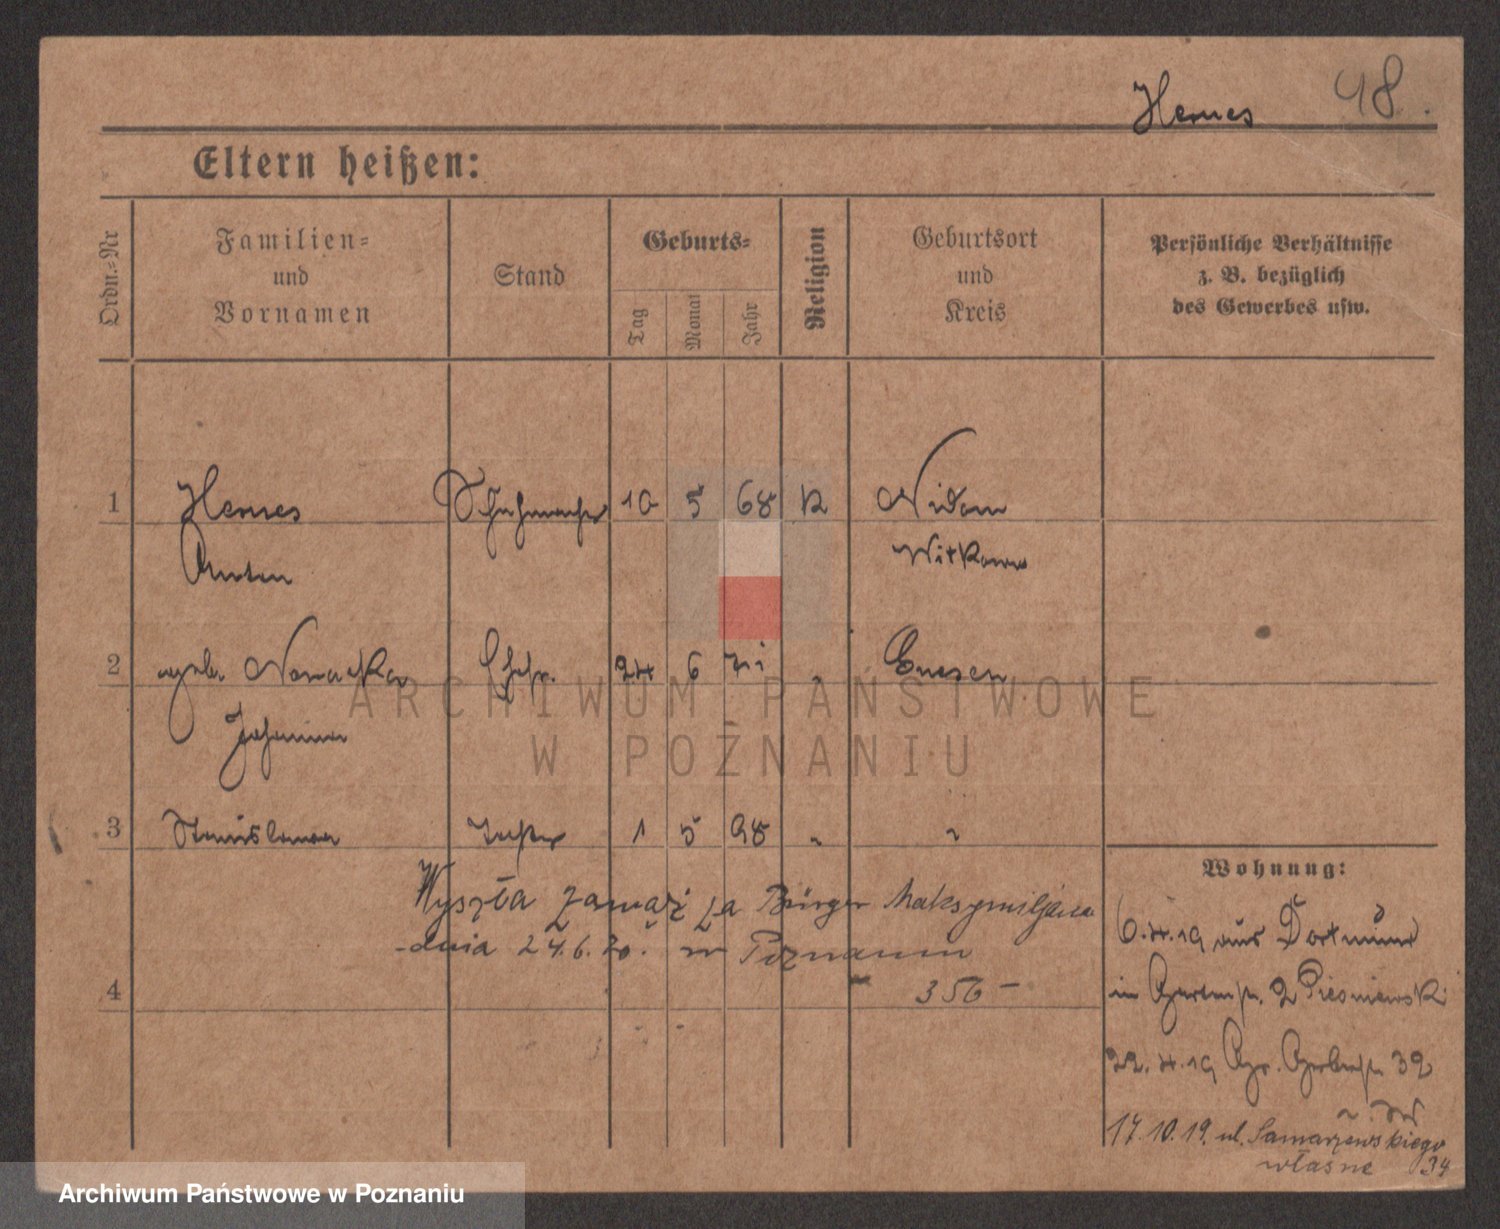 Hemes 48.
Eltern heißen:
Ordn.=Nr
Familien=
und
Vornamen
Stand
Geburts=
Tag
Monat
Jahr
Religion
Geburtsort
und
Kreis
Persönliche Verhältnisse
z. B. bezüglich
des Gewerbes usw.
1 Hemes Schuhmacher 10 5 68 K Nidom
Anton Witkowo
2 geb. Nowacka Ehefr. 24 6 71 " Gnesen
Johanna
3 Stanislawa Tochter 1 5 98 " "
Wohnung:
Wyszła zamąż za Bürger Maksymiljana
dnia 24.6.20. w Poznaniu
4 356 –
6.4.19 aus Dortmund
in Gartenstr. 2 Piesniewski
22.4.19 39
17.10.19. ul. Samarzewskiego
własne 34
ARCHIWUM PAŃSTWOWE
W POZNANIU
Archiwum Państwowe w Poznaniu